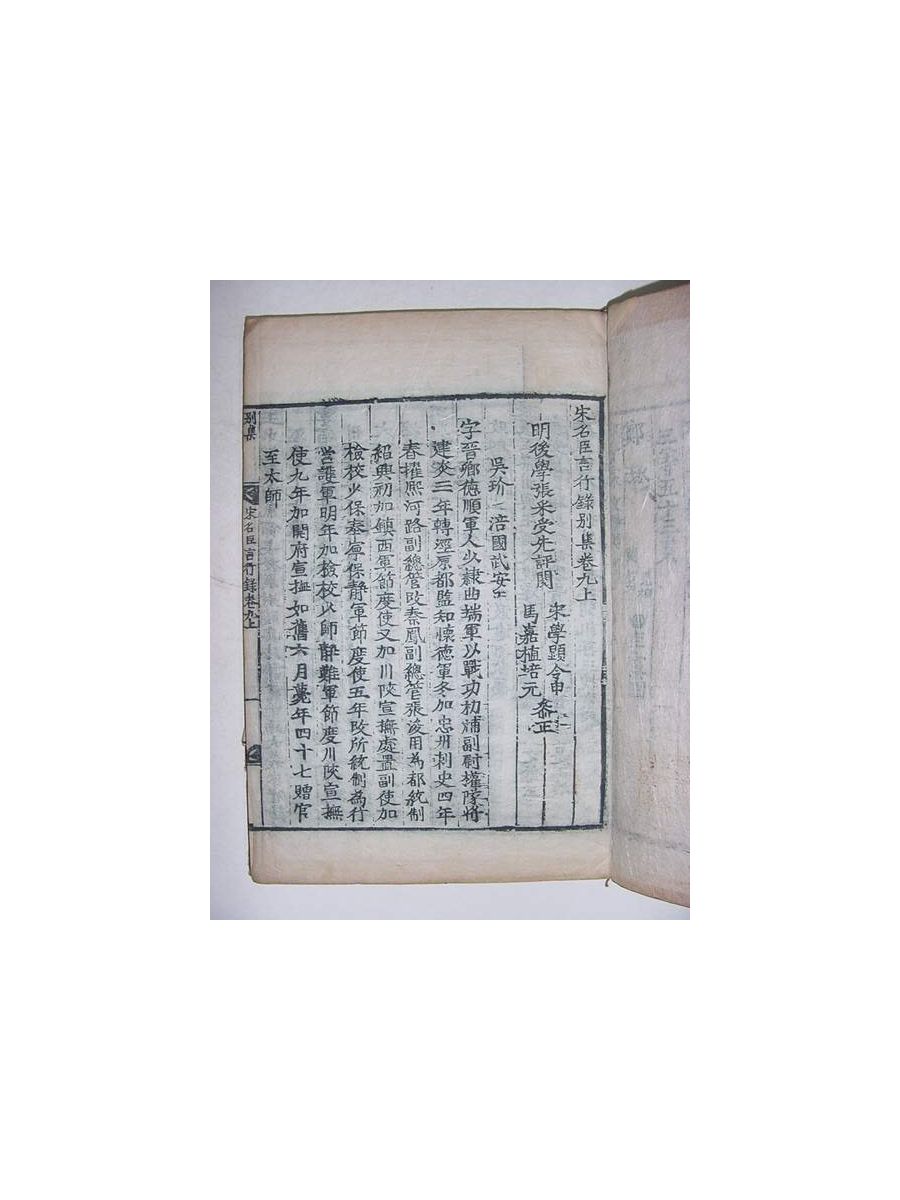 宋名臣言行錄别集卷九上
明後學張采受先評閱
宋學顕令申
馬嘉植培元
叅正
吳玠
涪國武安公
字晉卿德順軍人少隷曲端軍以戰功初補副尉權隊將
建炎三年轉涇原都監知懷德軍冬加忠州刺史四年
春擢熙河路副緫管改秦鳳副緫管張浚用為都統制
紹興初加鎮西軍節度使又加川陜宣撫處置副使加
檢校少保奉寧保靜軍節度使五年改所統制為行
營護軍明年加檢校少師靜難軍節度川陜宣撫
使九年加開府宣撫如舊六月薨年四十七贈官
至太師
别集
宋名臣言行錄卷九上